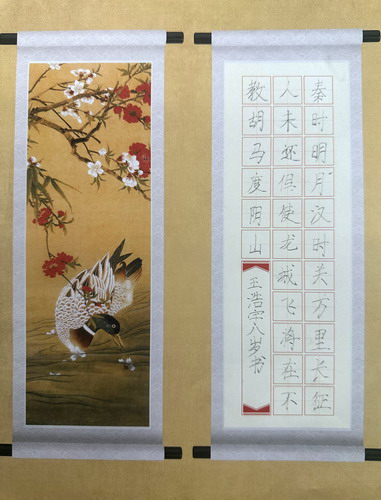 秦时明月汉时关万里长征
人未还但使龙城飞将在不
教胡马度阴山
王浩宇八岁书